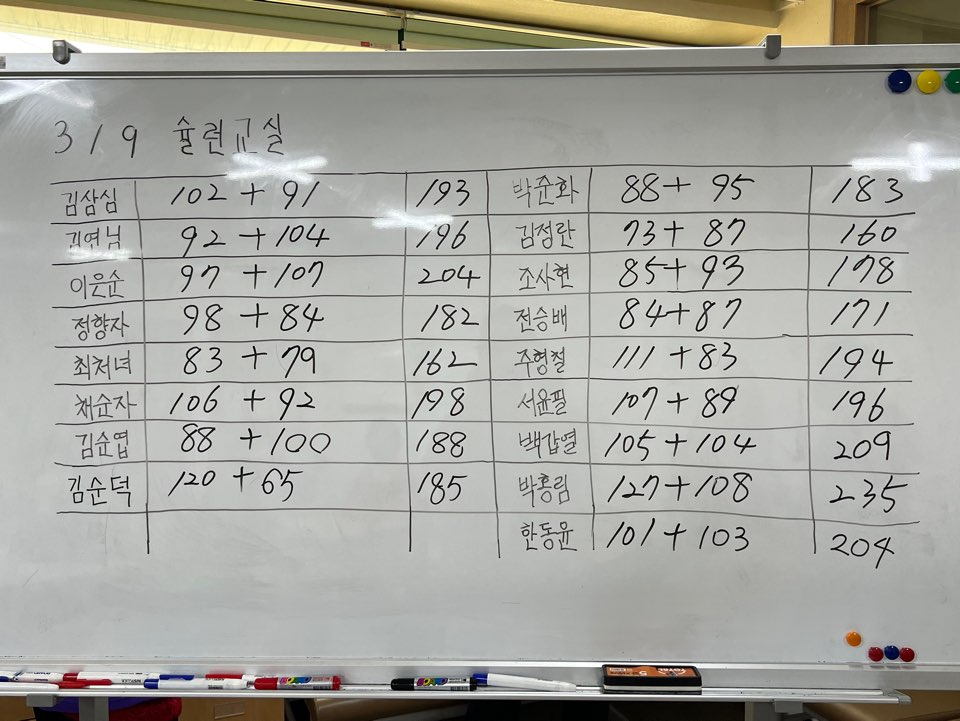 3/9 슐런교실
김삼심 102 + 91 193 박준화 88 + 95 183
김연님 92 + 104 196 김정란 73 + 87 160
이은순 97 + 107 204 조사현 85 + 93 178
정향자 98 + 84 182 전승배 84 + 87 171
최저녀 83 + 79 162 주형철 111 + 83 194
채순자 106 + 92 198 서윤필 107 + 89 196
김순엽 88 + 100 188 백갑열 105 + 104 209
김순덕 120 + 65 185 박홍림 127 + 108 235
한동윤 101 + 103 204